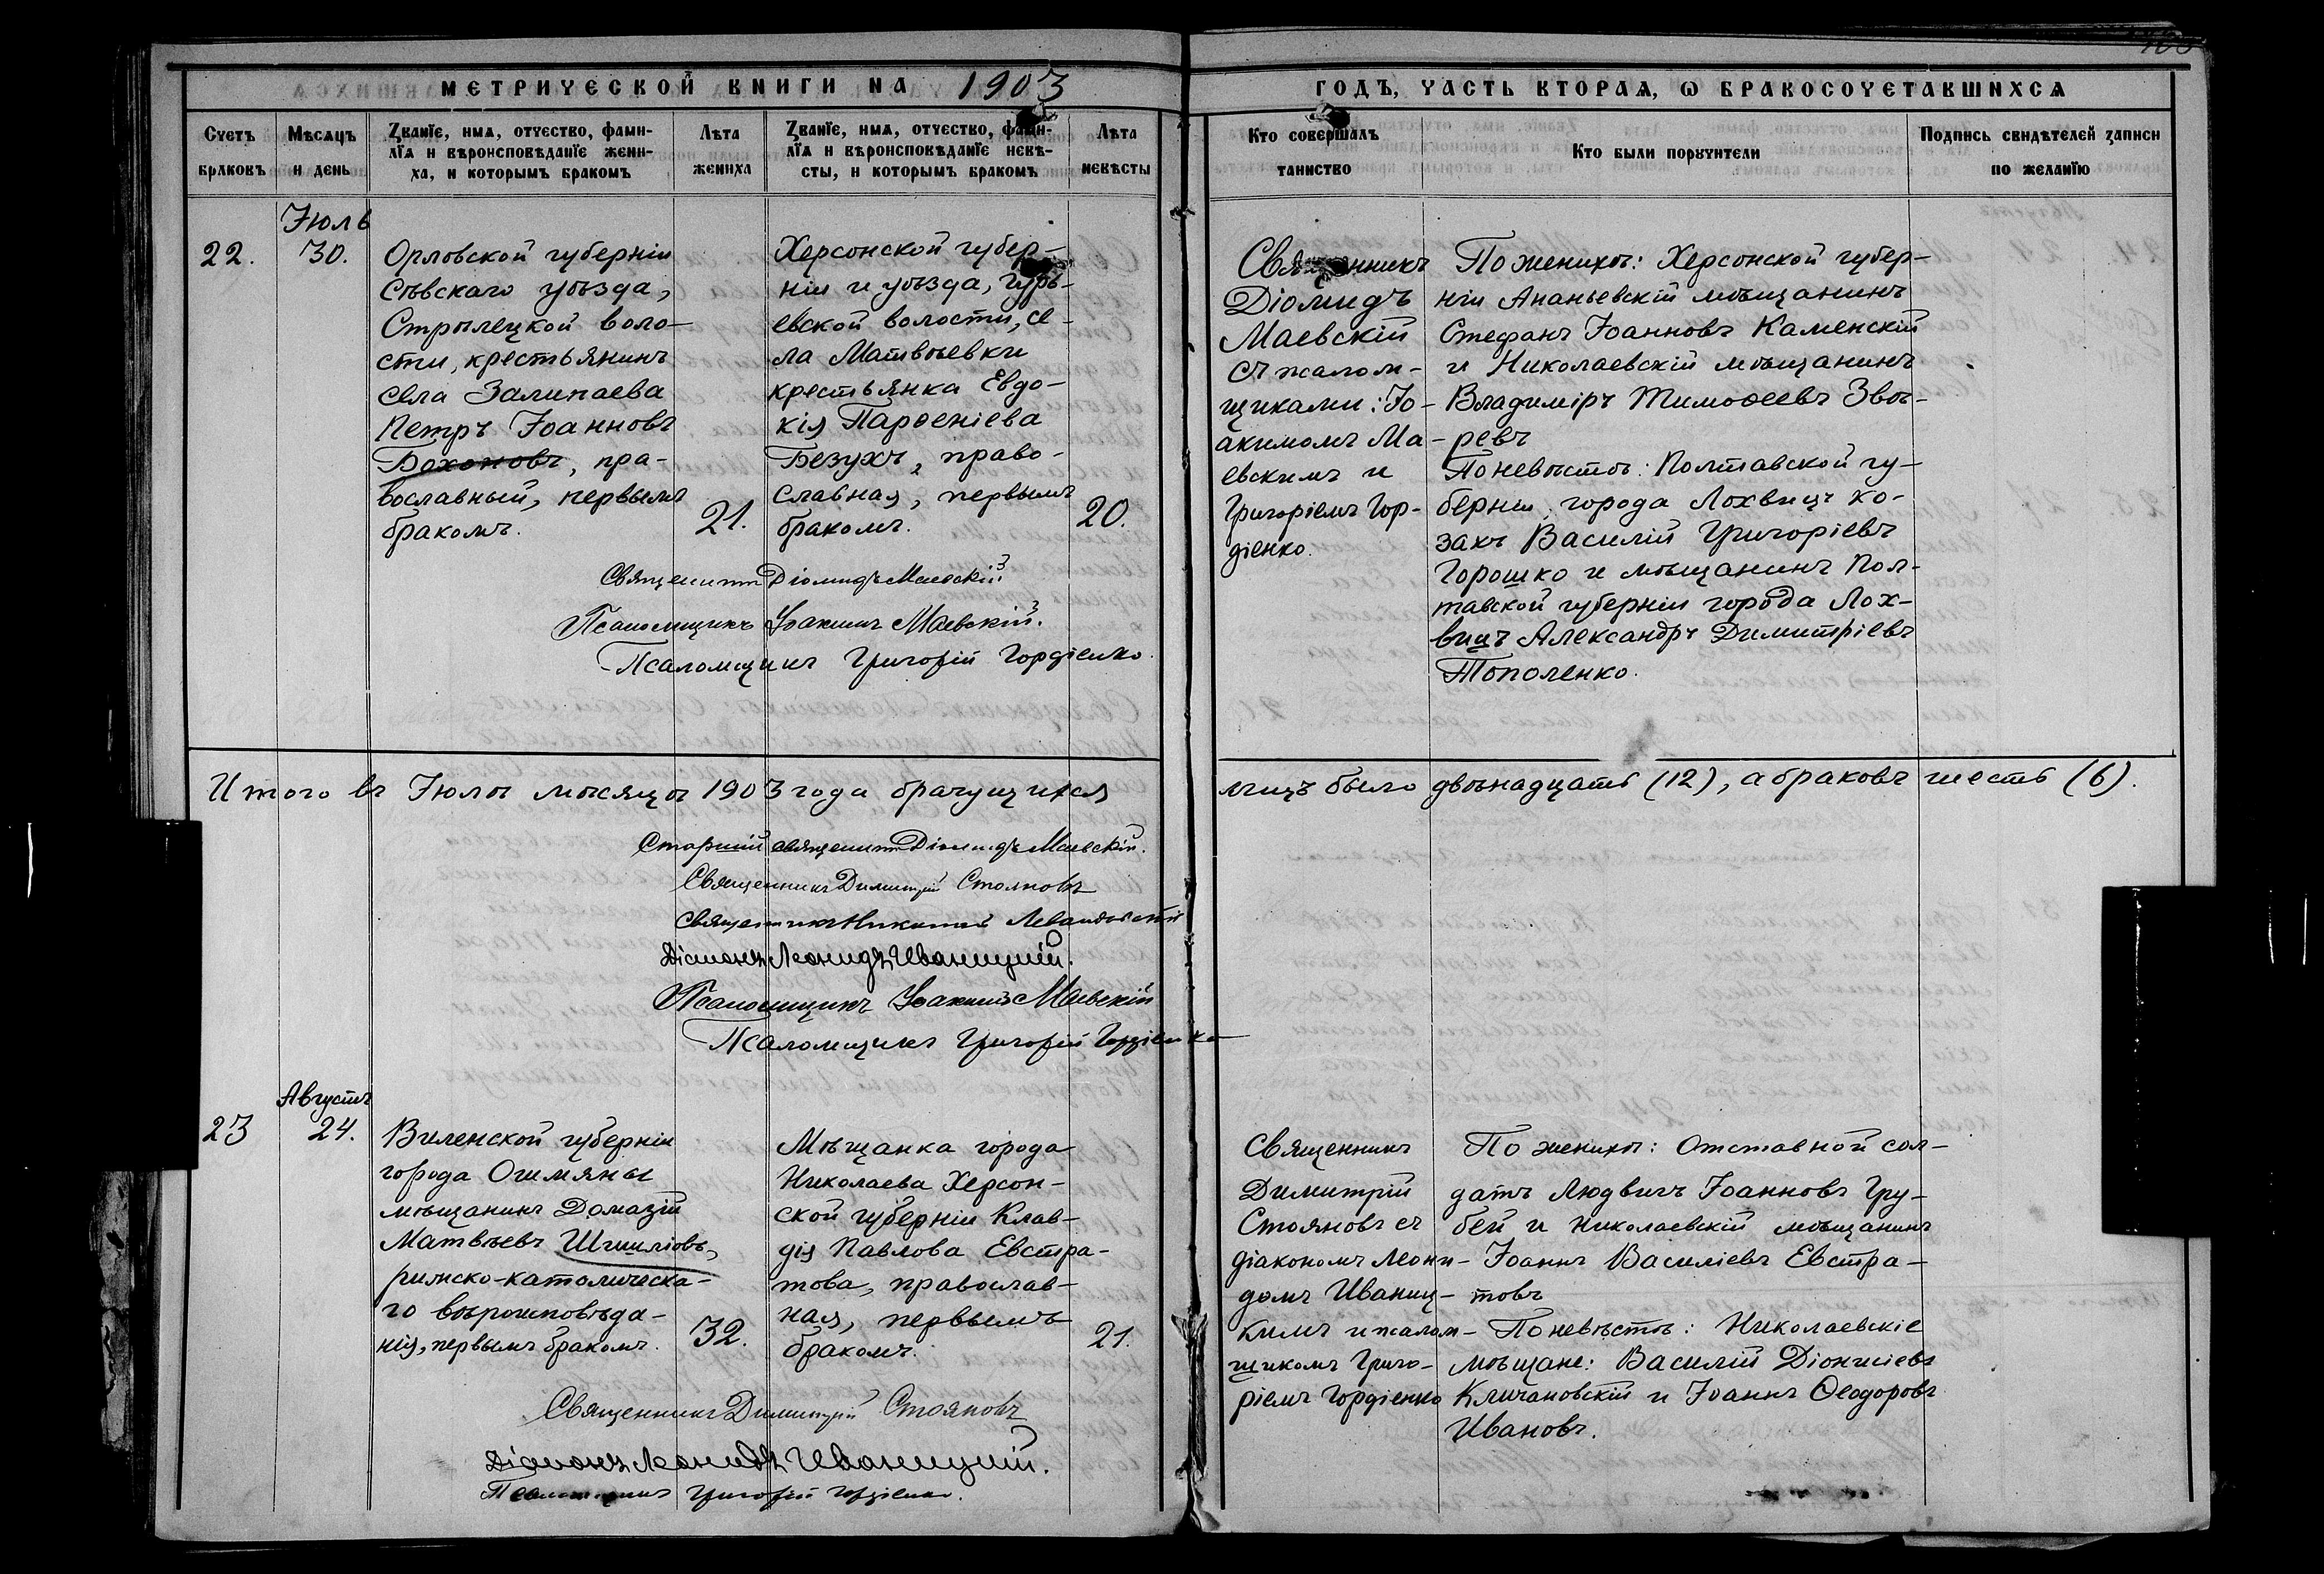 МЕТРИЧЕСКОЙ КНИГИ НА 1903
ГОДЪ, ЧАСТЬ ВТОРАѦ, Ѡ БРАКОСОЧЕТАВШИХСѦ
Счетъ браковъ
Мѣсяцъ и день
Званїе, имѧ, отчество, фами-
лїѧ и вѣроисповѣданїе жени-
ха, и которымъ бракомъ
Лѣта жениха
Званїе, имѧ, отчество, фами-
лїѧ и вѣроисповѣданїе невѣ-
сты, и которымъ бракомъ
Лѣта невѣсты
Кто совершалъ
таинство
Кто были порꙋчители
Подпись свидѣтелей записи
по желанїю
22.
Іюль
30.
Орловской губерніи
Сѣвскаго уѣзда,
Стрѣлецкой воло-
сти, крестьянинъ
села Залипаева
Петръ Іоанновъ
Бохоновъ, пра-
вославный, первымъ
бракомъ.
21.
Херсонской губер-
ніи и уѣзда, Гурь-
евской волости, се-
ла Матвѣевки
крестьянка Евдо-
кія Парѳеніева
Безухъ, право-
славная, первымъ
бракомъ.
20.
Священникъ
Діомидъ
Маевскій
съ псалом-
щиками: Іо-
акимомъ Ма-
евскимъ и
Григоріемъ Гор-
діенко.
По женихѣ: Херсонской губер-
ніи Ананьевскій мѣщанинъ
Стефанъ Іоанновъ Каменскій
и Николаевскій мѣщанинъ
Владиміръ Тимоѳеевъ Звѣ-
ревъ
По невѣстѣ: Полтавской гу-
берніи, города Лохвицъ ко-
закъ Василій Григоріевъ
Горошко и мѣщанинъ Пол-
тавской губерніи города Лох-
вицъ Александръ Димитріевъ
Тополенко.
Священникъ Діомидъ Маевскій
Псаломщикъ Іоакимъ Маевскій.
Псаломщикъ Григорій Гордіенко.
Итого въ Іюлѣ мѣсяцѣ 1903 года брачущихся
лицъ было двѣнадцать (12), а браковъ шесть (6).
Старшій священникъ Діомидъ Маевскій.
Священникъ Димитрій Стояновъ
Священникъ
Діаконъ Леонидъ Иваницкій.
Псаломщикъ Іоакимъ Маевскій
Псаломщикъ Григорій Гордіенко
23
Августъ
24.
Виленской губерніи
города Ошмяны
мѣщанинъ Домазій
Матвѣевъ
римско-католическа-
го вѣроисповѣда-
нія, первымъ бракомъ.
32.
Мѣщанка города
Николаева Херсон-
ской губерніи Клав-
дія Павлова Евстра-
това, православ-
ная, первымъ
бракомъ.
21.
Священникъ
Димитрій
Стояновъ съ
діакономъ Леони-
домъ Иваниц-
кимъ и псалом-
щикомъ Григо-
ріемъ Гордіенко
По женихѣ: Отставной сол-
датъ Людвигъ Іоанновъ Гру-
бей и Николаевскій мѣщанинъ
Іоаннъ Василіевъ Евстра-
товъ
По невѣстѣ: Николаевскіе
мѣщане: Василій Діонисіевъ
Кличановскій и Іоаннъ Ѳеодоровъ
Ивановъ.
Священникъ Димитрій Стояновъ
Діаконъ Леонидъ Иваницкій.
Псаломщикъ Григорій Гордіенко.